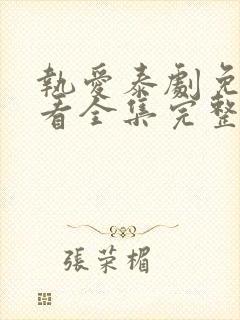 執愛泰劇免
看全集完整
張荣楣